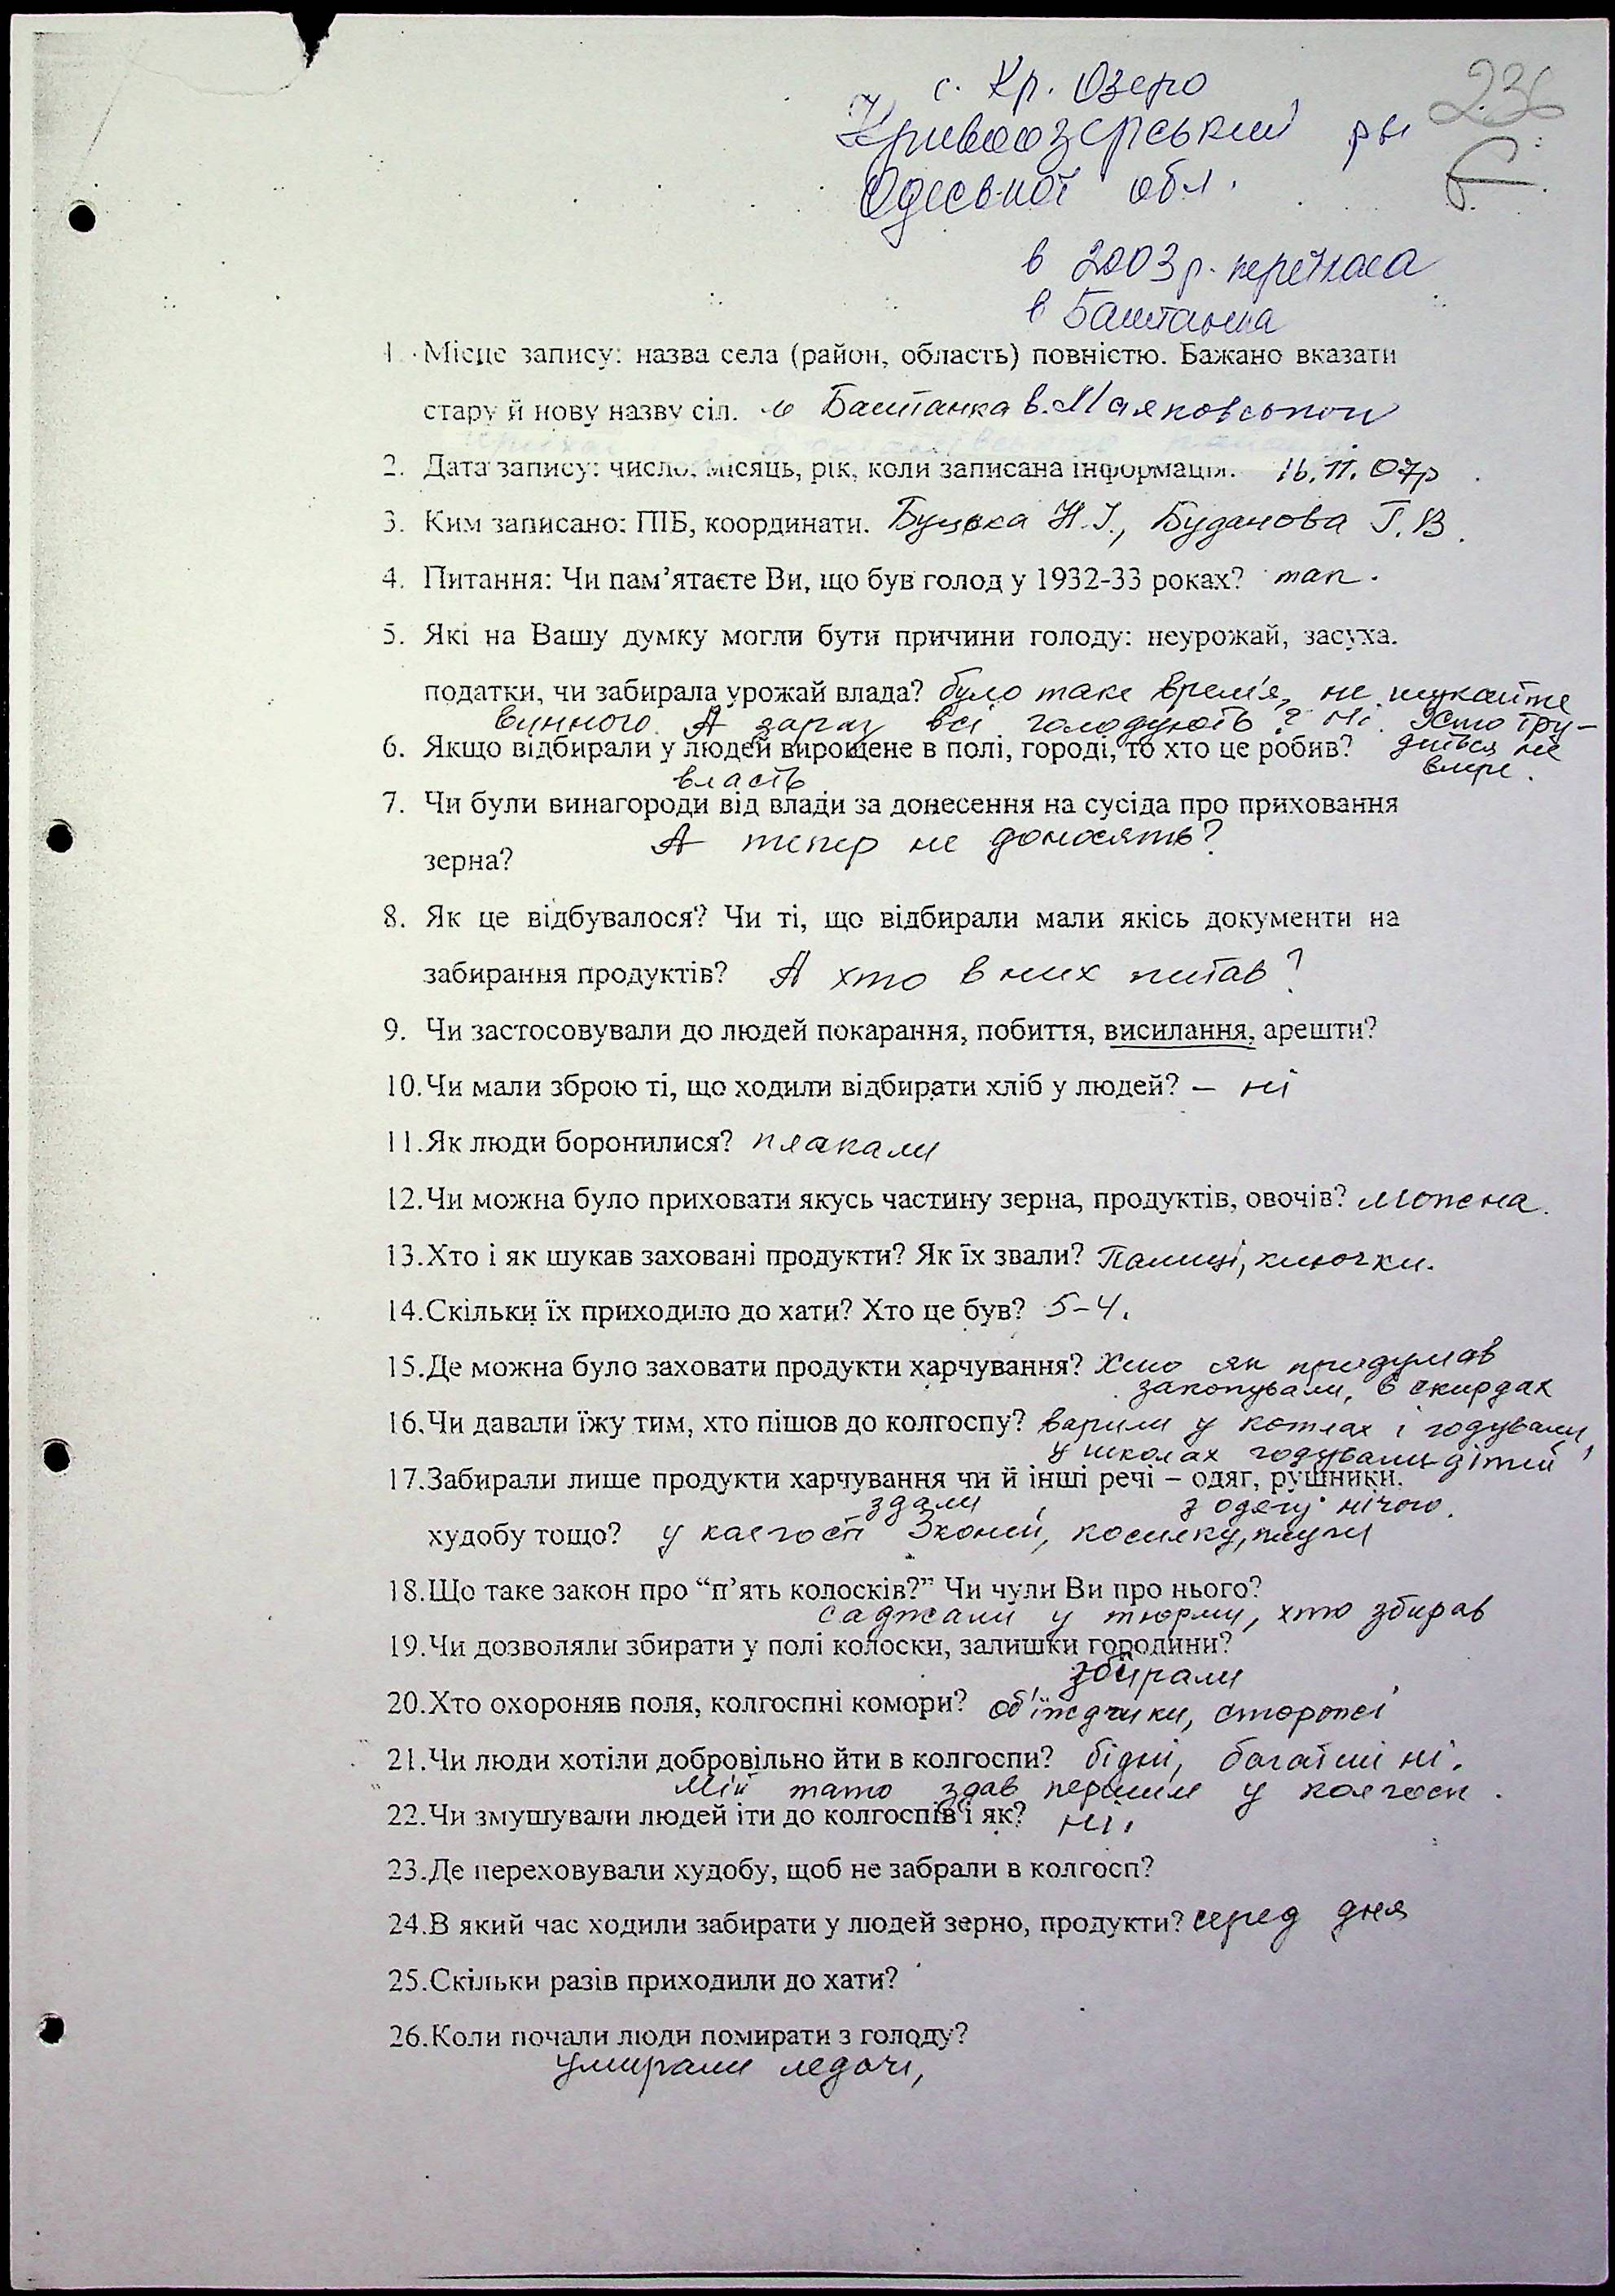 236
с. Кр. Озеро
Кривоозерський р-н
Одеської обл.
в 2003 р. переїхала
в Баштанка
1. Місце запису: назва села (район, область) повністю. Бажано вказати
стару й нову назву сіл. м Баштанка в. Маяковського
2. Дата запису: число, місяць, рік, коли записана інформація. 16.11.07р
3. Ким записано: ПІБ, координати. Буцька Н.І., Буданова Г.В.
4. Питання: Чи пам’ятаєте Ви, що був голод у 1932-33 роках? так.
5. Які на Вашу думку могли бути причини голоду: неурожай, засуха.
податки, чи забирала урожай влада? було таке врем'я, не шукайте
винного. А зараз всі голодують? Ні. Хто тру-
диться не
вмре.
6. Якщо відбирали у людей вирощене в полі, городі, то хто це робив?
власть
7. Чи були винагороди від влади за донесення на сусіда про приховання
зерна? А тепер не доносять?
8. Як це відбувалося? Чи ті, що відбирали мали якісь документи на
забирання продуктів? А хто в них питав?
9. Чи застосовували до людей покарання, побиття, висилання, арешти?
10. Чи мали зброю ті, що ходили відбирати хліб у людей? – ні
11. Як люди боронилися? плакали
12. Чи можна було приховати якусь частину зерна, продуктів, овочів? можна.
13. Хто і як шукав заховані продукти? Як їх звали? Палиці, ключки.
14. Скільки їх приходило до хати? Хто це був? 5-4.
15. Де можна було заховати продукти харчування? Хто як придумав
закопували, в скирдах
16. Чи давали їжу тим, хто пішов до колгоспу? варили у котлах і годували,
у школах годували дітей
17. Забирали лише продукти харчування чи й інші речі – одяг, рушники,
здали з одягу нічого.
худобу тощо? у колгосп 3 коней, косилку, плуги
18. Що таке закон про “п’ять колосків?” Чи чули Ви про нього?
саджали у тюрму, хто збирав
19. Чи дозволяли збирати у полі колоски, залишки городини?
збирали
20. Хто охороняв поля, колгоспні комори? об'їждчики, сторожі
21. Чи люди хотіли добровільно йти в колгоспи? бідні, багатші ні.
Мій тато здав першим у колгосп.
22. Чи змушували людей іти до колгоспів і як? ні.
23. Де переховували худобу, щоб не забрали в колгосп?
24. В який час ходили забирати у людей зерно, продукти? серед дня
25. Скільки разів приходили до хати?
26. Коли почали люди помирати з голоду?
Умирали ледачі,